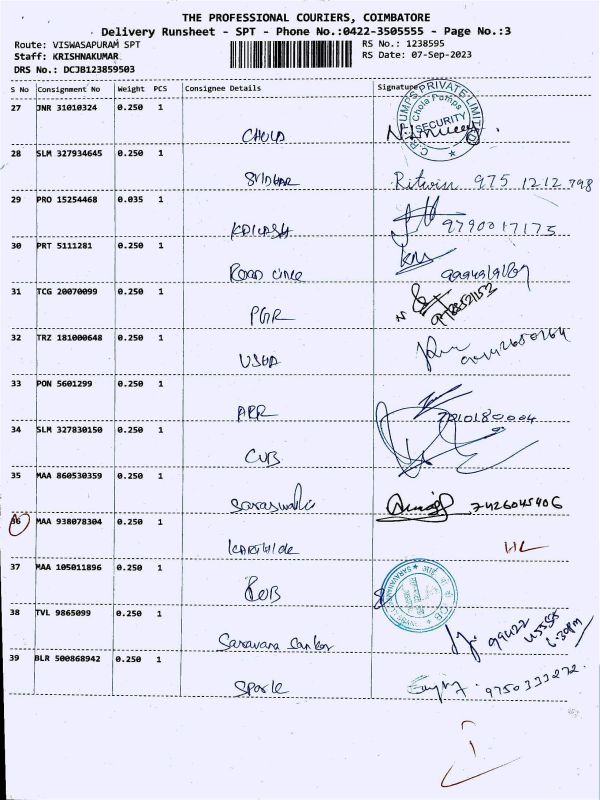 THE PROFESSIONAL COURIERS, COIMBATORE
Delivery Runsheet - SPT - Phone No.:0422-3505555 - Page No.:3
Route: VISWASAPURAM SPT
RS No.: 1238595
Staff: KRISHNAKUMAR
RS Date: 07-Sep-2023
DRS No.: DCJB123859503
S No Consignment No Weight PCS Consignee Details Signature
27 JNR 31010324 0.250 1
CHOLA
PUMPS PRIVATE LIMITED
Chola Pumps
SECURITY
28 SLM 327934645 0.250 1
SRIDHAR
Ritwin 975 1212 798
29 PRO 15254468 0.035 1
KAILASH
9790017175
30 PRT 5111281 0.250 1
ROAD
31 TCG 20070099 0.250 1
PGR
32 TRZ 181000648 0.250 1
USHA
33 PON 5601299 0.250 1
ARR
34 SLM 327830150 0.250 1
CUB
35 MAA 860530359 0.250 1
Saraswathi
7426045406
36 MAA 938078304 0.250 1
KARTHICK
37 MAA 105011896 0.250 1
38 TVL 9865099 0.250 1
Saravana Sankar
99422
45555
6.30pm
39 BLR 500868942 0.250 1
Sparle
9750333272